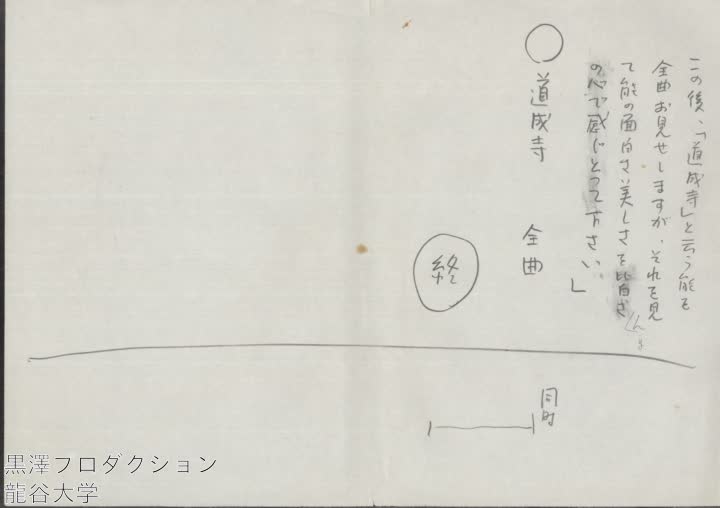 この後、「道成寺」と云う能を
全曲お見せしますが、それを見
て能の面白さ美しさを皆さ
んの心で感じとって下さい。」
○ 道成寺 全曲
終
同時
黒澤プロダクション
龍谷大学